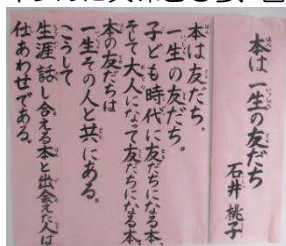 本は一生の友だち
石井 桃子
本は友だち。
一生の友だち。
子ども時代に友だちになる本、
そして大人になって友だちになる本。
本の友だちは
一生その人と共にある。
こうして
生涯話し合える本と出会えた人は
仕あわせである。